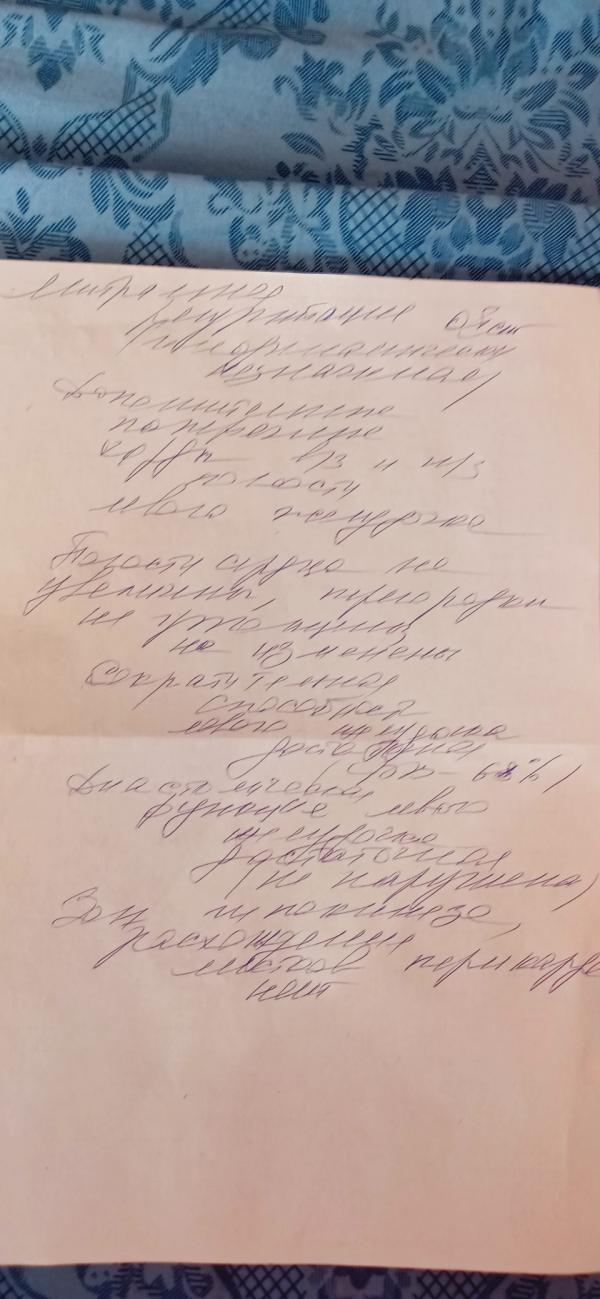 Митральная
регургитация 0-I ст
гемодинамически
незначимая)
Дополнительные
поперечные
хорды в/з и н/з
полости
левого желудочка
Полости сердца не
увеличены, перегородки
не утолщены
не изменены
Сократительная
способность
левого желудочка
достаточная
(ФВ - 68%)
Диастолическая
функция левого
желудочка
достаточная
(не нарушена)
Зон гипокинеза,
расхождения
листков перикарда
нет